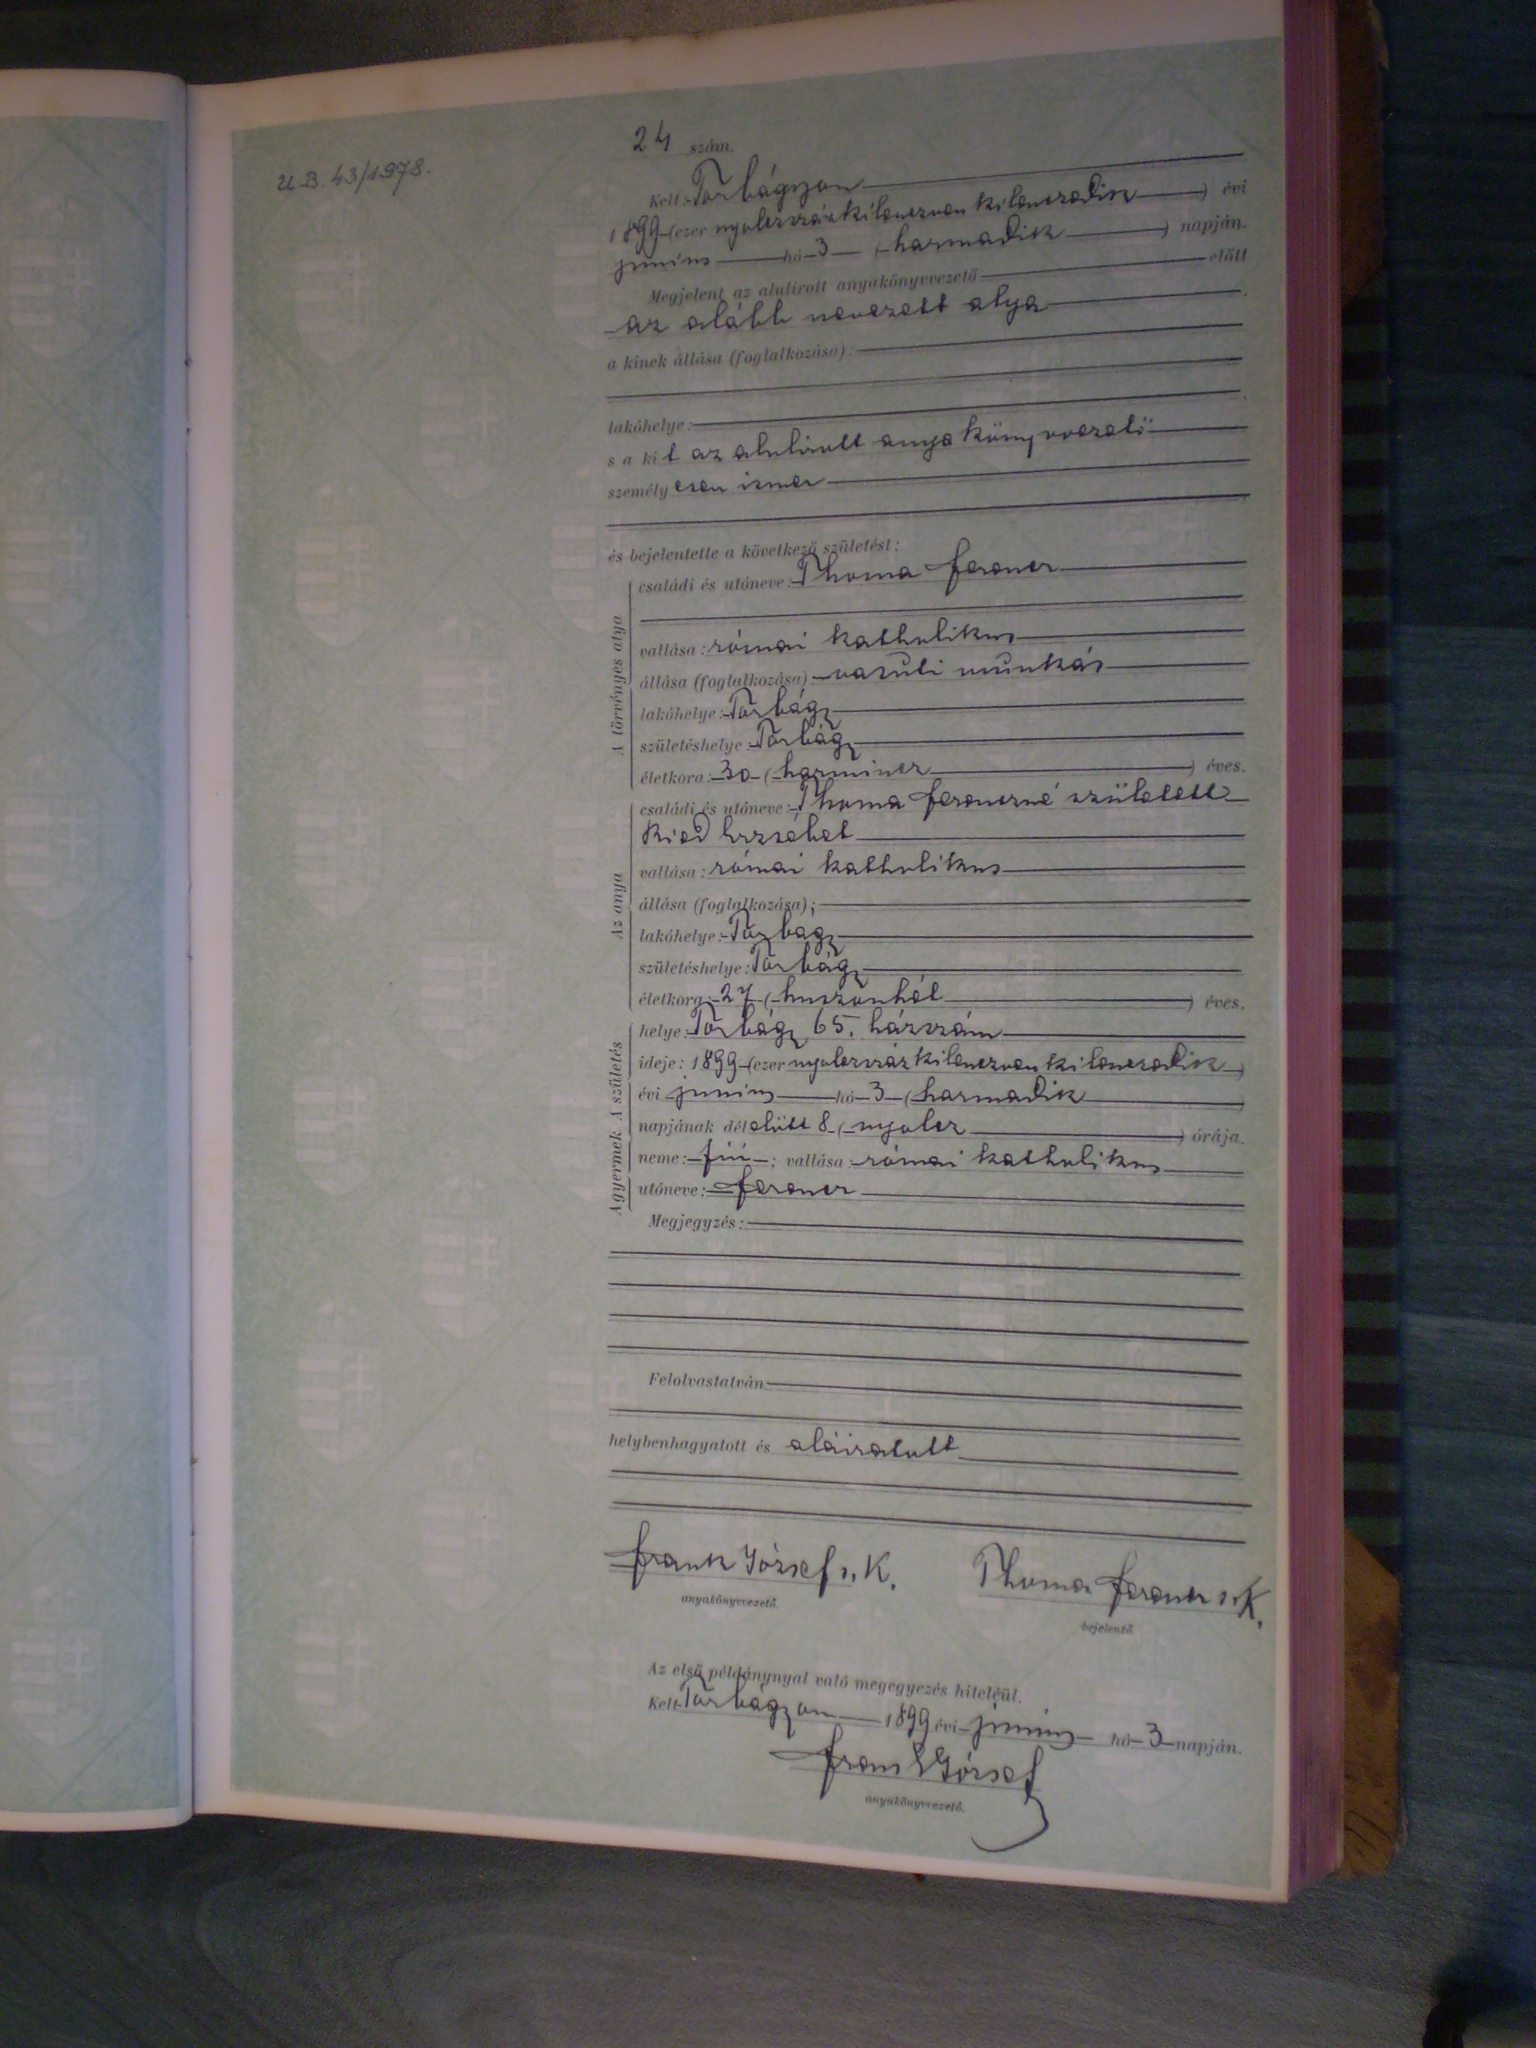 U.B. 43/1978.
24 szám.
Kelt: Torbágyon
1899 (ezer nyolczszázkilenczvenkilenczedik) évi
junius hó 3 (harmadik) napján.
Megjelent az alulirott anyakönyvvezető előtt
az alább nevezett atya
a kinek állása (foglalkozása):
lakóhelye:
s a kit az alulirott anyakönyvvezető
személyesen ismer
és bejelentette a következő születést:
A törvényes atya
családi és utóneve: Thoma Ferencz
vallása: római katholikus
állása (foglalkozása): vasuti munkás
lakóhelye: Torbágy
születéshelye: Torbágy
életkora: 30 (harmincz) éves.
Az anya
családi és utóneve: Thoma Ferenczné született
Ried Erzsébet
vallása: római katholikus
állása (foglalkozása):
lakóhelye: Torbágy
születéshelye: Torbágy
életkora: 27 (huszonhét) éves.
A születés
helye: Torbágy 65. házszám
ideje: 1899 (ezer nyolczszázkilenczvenkilenczedik)
évi junius hó 3 (harmadik)
napjának délelőtt 8 (nyolcz) órája.
A gyermek
neme: fiú; vallása: római katholikus
utóneve: Ferencz
Megjegyzés:
Felolvastatván
helybenhagyatott és aláiratott
Frank József s. k. Thoma Ferencz s. k.
anyakönyvvezető. bejelentő
Az első példánynyal való megegyezés hiteléül.
Kelt Torbágyon 1899 évi junius hó 3 napján.
Frank József
anyakönyvvezető.